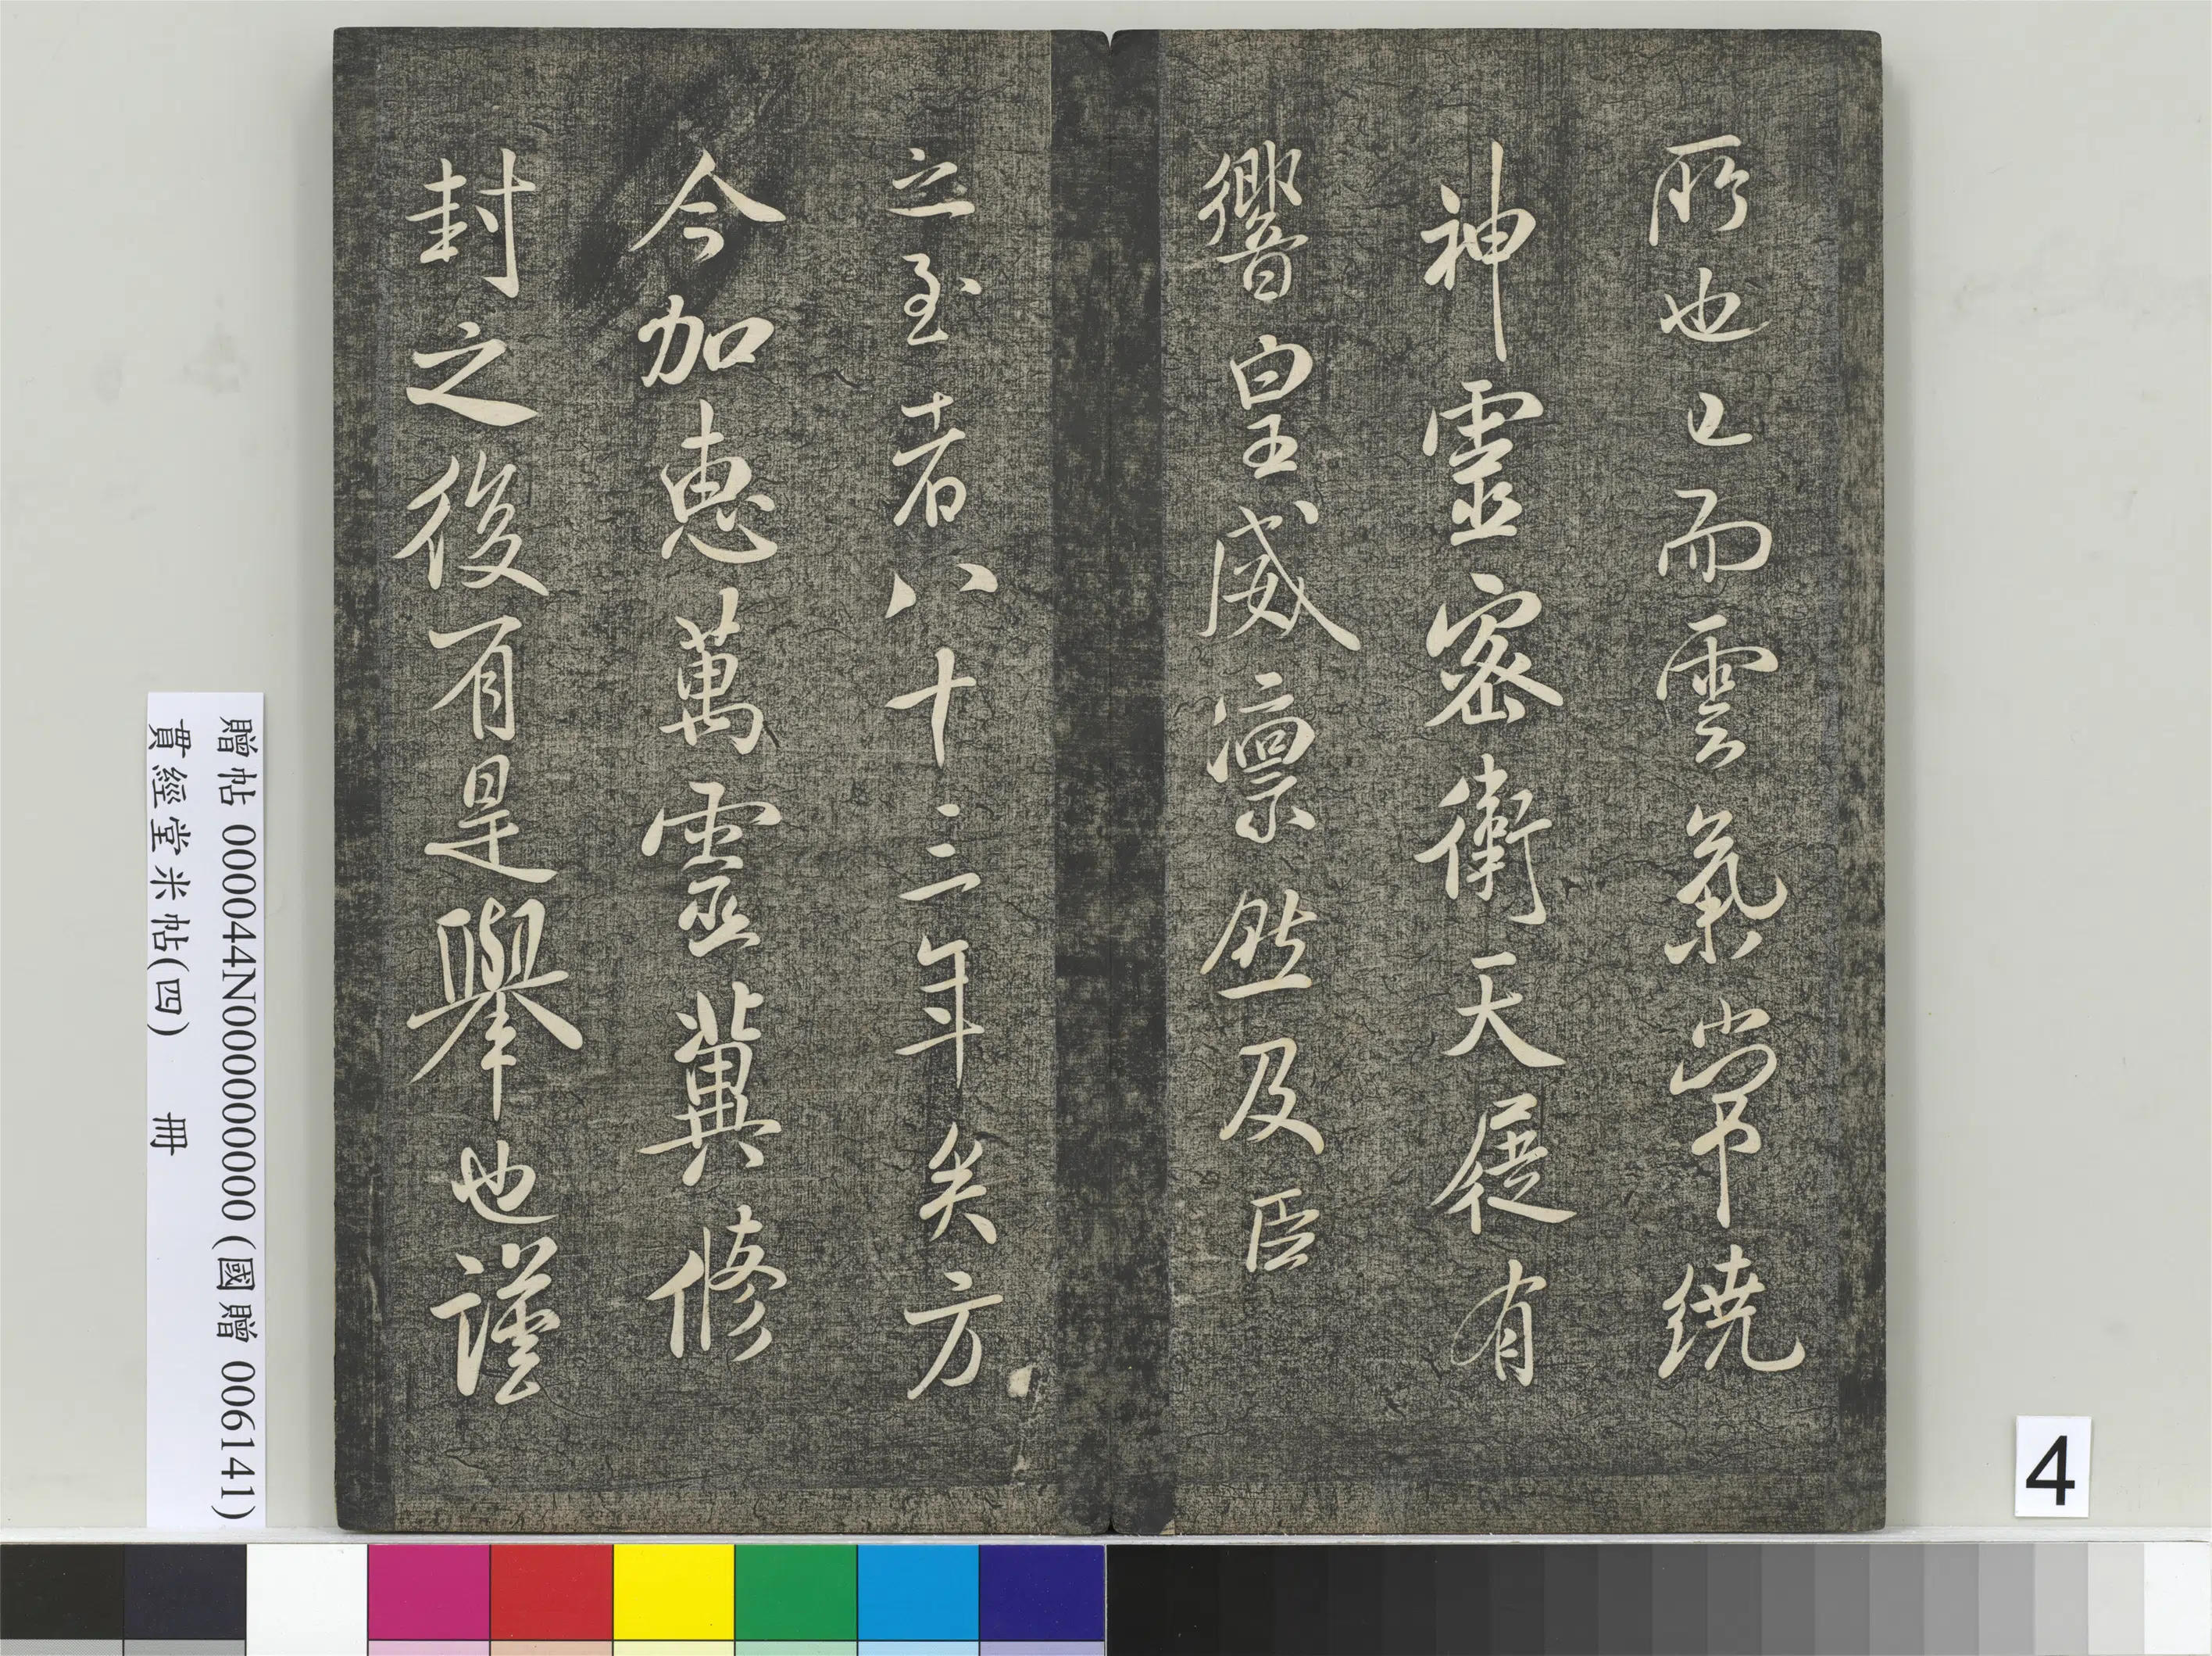 所也已而雲氣常繞
神靈密衛天展有
響皇威凛然及臣
之至者八十三年矣方
今加惠萬靈冀修
封之後有是舉也謹
贈帖 000044N000000000 (國贈 006141)
貫經堂米帖(四) 冊
4